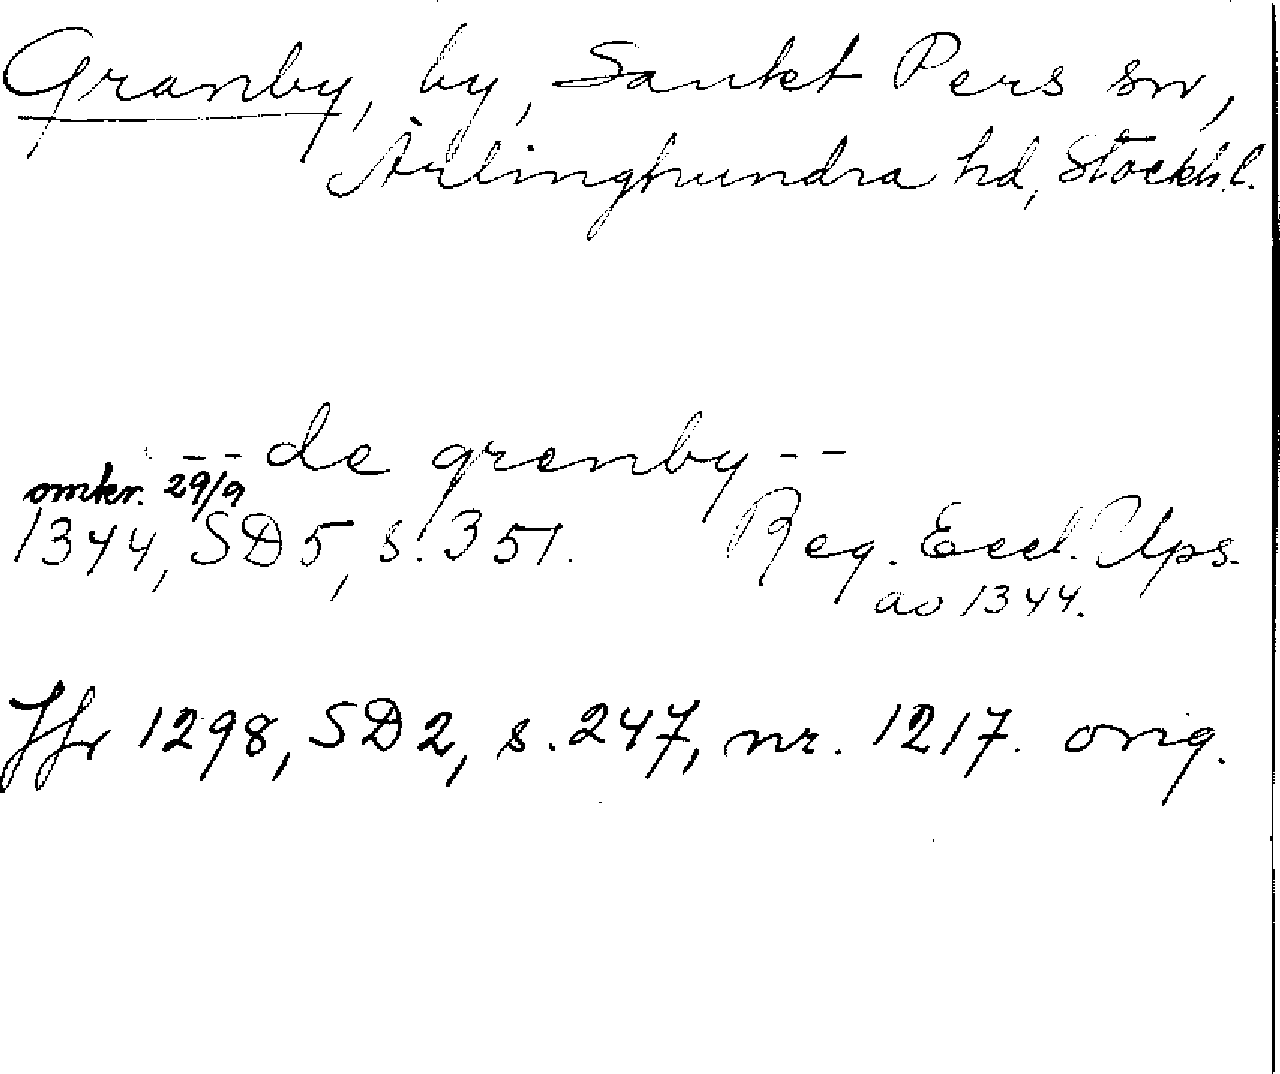 Granby, by, Sankt Pers sn,
Ärlinghundra hd, Stockh.l.
-- de grenby --
omkr. 29/9
1344, SD5, s. 351. Reg. Eccl. Ups.
ao 1344.
Jfr 1298, SD2, s. 247, nr. 1217. orig.